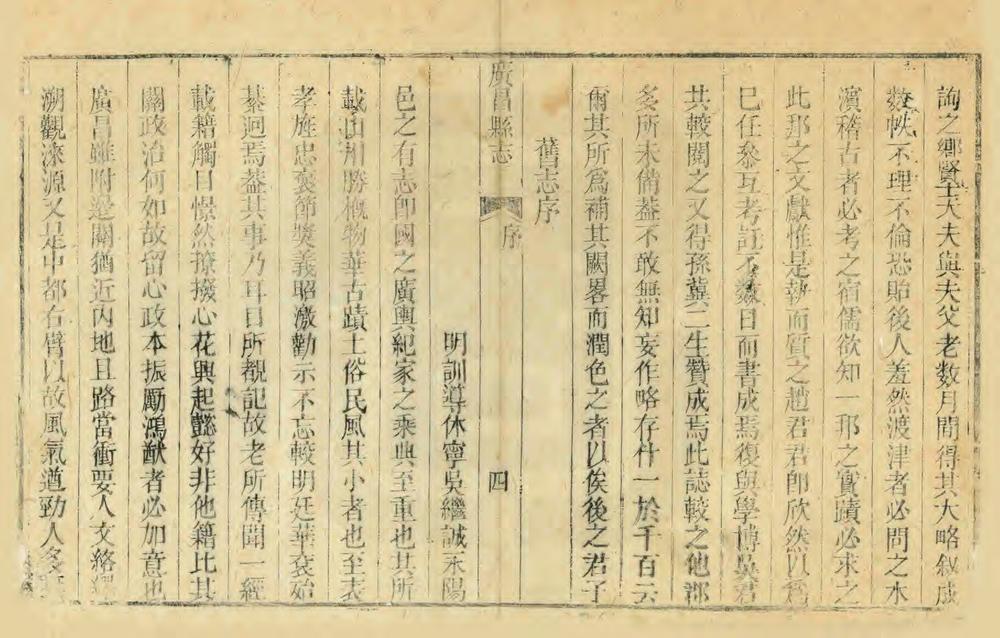 詢之鄉賢士大夫與夫父老數月間得其大略叙成
數帙不理不倫恐貽後人羞然渡津者必問之木
濱稽古者必考之宿儒欲知一邦之實蹟必求之
此邦之文獻惟是執而質之趙君君即欣然以爲
已任叅互考訂不數日而書成焉復與學博吳君
共較閱之又得孫冀二生贊成焉此誌較之他郡
多所未備葢不敢無知妄作略存什一於千百云
爾其所爲補其闕畧而潤色之者以俟後之君子
舊志序
廣昌縣志
序
四
明訓導休寧吳繼誠
邑之有志卽國之廣輿紀家之乘典至重也其所
載山川勝槪物華古蹟土俗民風其小者也至表
孝旌忠褒節奬義昭激勸示不忘較明廷華衮殆
綦迥焉葢其事乃耳目所覩記故老所傳聞一經
載籍觸目憬然撩撥心花興起懿好非他籍比其
關政治何如故留心政本振勵鴻猷者必加意也
廣昌雖附邊關猶近內地且路當衝要人文絡
溯觀淶源又是中都右臂以故風氣遒勁人多